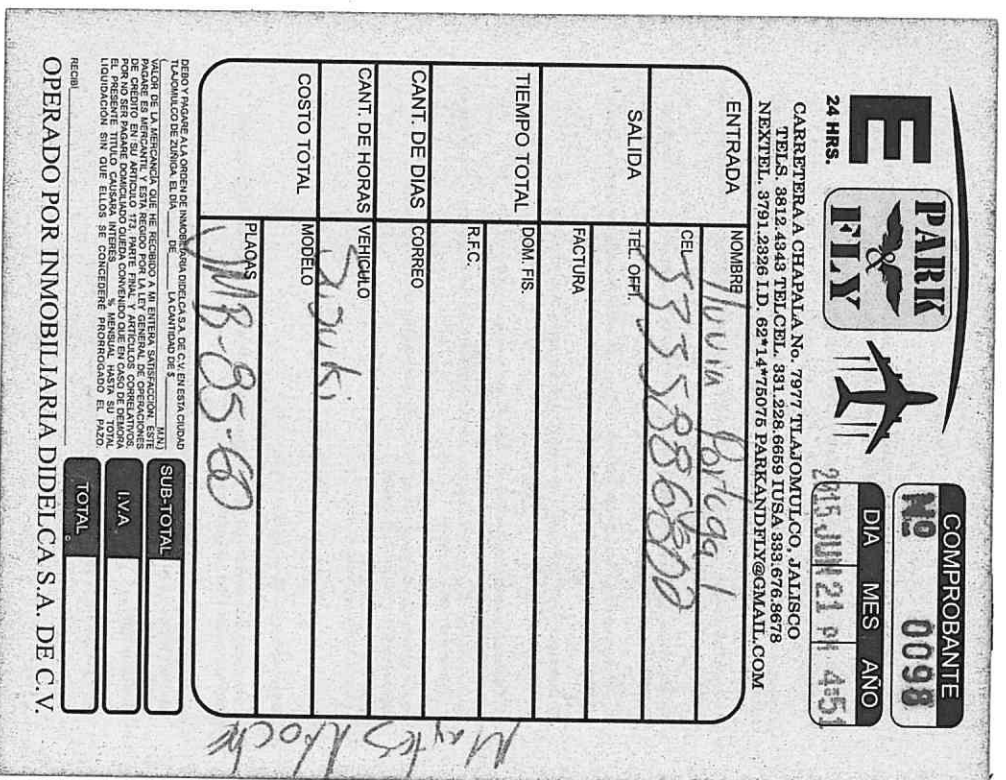 E PARK & FLY
24 HRS.
COMPROBANTE
Nº 0098
DIA MES AÑO
2015 JUN 21 PM 4:51
CARRETERA A CHAPALA No. 7977 TLAJOMULCO, JALISCO
TELS. 3812.4343 TELCEL. 331.228.6659 IUSA 333.676.8678
NEXTEL. 3791.2326 I.D. 62*14*75075 PARKANDFLY@GMAIL.COM
ENTRADA
SALIDA
TIEMPO TOTAL
CANT. DE DIAS
CANT. DE HORAS
COSTO TOTAL
NOMBRE Portugal
CEL. 3335886800
TEL. OFF.
FACTURA
DOM. FIS.
R.F.C.
CORREO
VEHICULO Suzuki
MODELO
PLACAS JMB-85-60
Martes Noche
DEBO Y PAGARE A LA ORDEN DE INMOBILIARIA DIDELCA S.A. DE C.V. EN ESTA CIUDAD
TLAJOMULCO DE ZUÑIGA. EL DÍA ____ DE ____ LA CANTIDAD DE $ ____
____ M.N.)
VALOR DE LA MERCANCÍA QUE HE RECIBIDO A MI ENTERA SATISFACCIÓN. ESTE
PAGARE ES MERCANTIL Y ESTA REGIDO POR LA LEY GENERAL DE OPERACIONES
DE CRÉDITO EN SU ARTICULO 173, PARTE FINAL Y ARTICULOS CORRELATIVOS.
POR NO SER PAGARE DOMICILIADO QUEDA CONVENIDO QUE EN CASO DE DEMORA
EL PRESENTE TITULO CAUSARA INTERES ____ % MENSUAL HASTA SU TOTAL
LIQUIDACIÓN SIN QUE ELLOS SE CONCEDERÉ PRORROGADO EL PAZO.
RECIBI
SUB-TOTAL
I.V.A.
TOTAL
OPERADO POR INMOBILIARIA DIDELCA S.A. DE C.V.